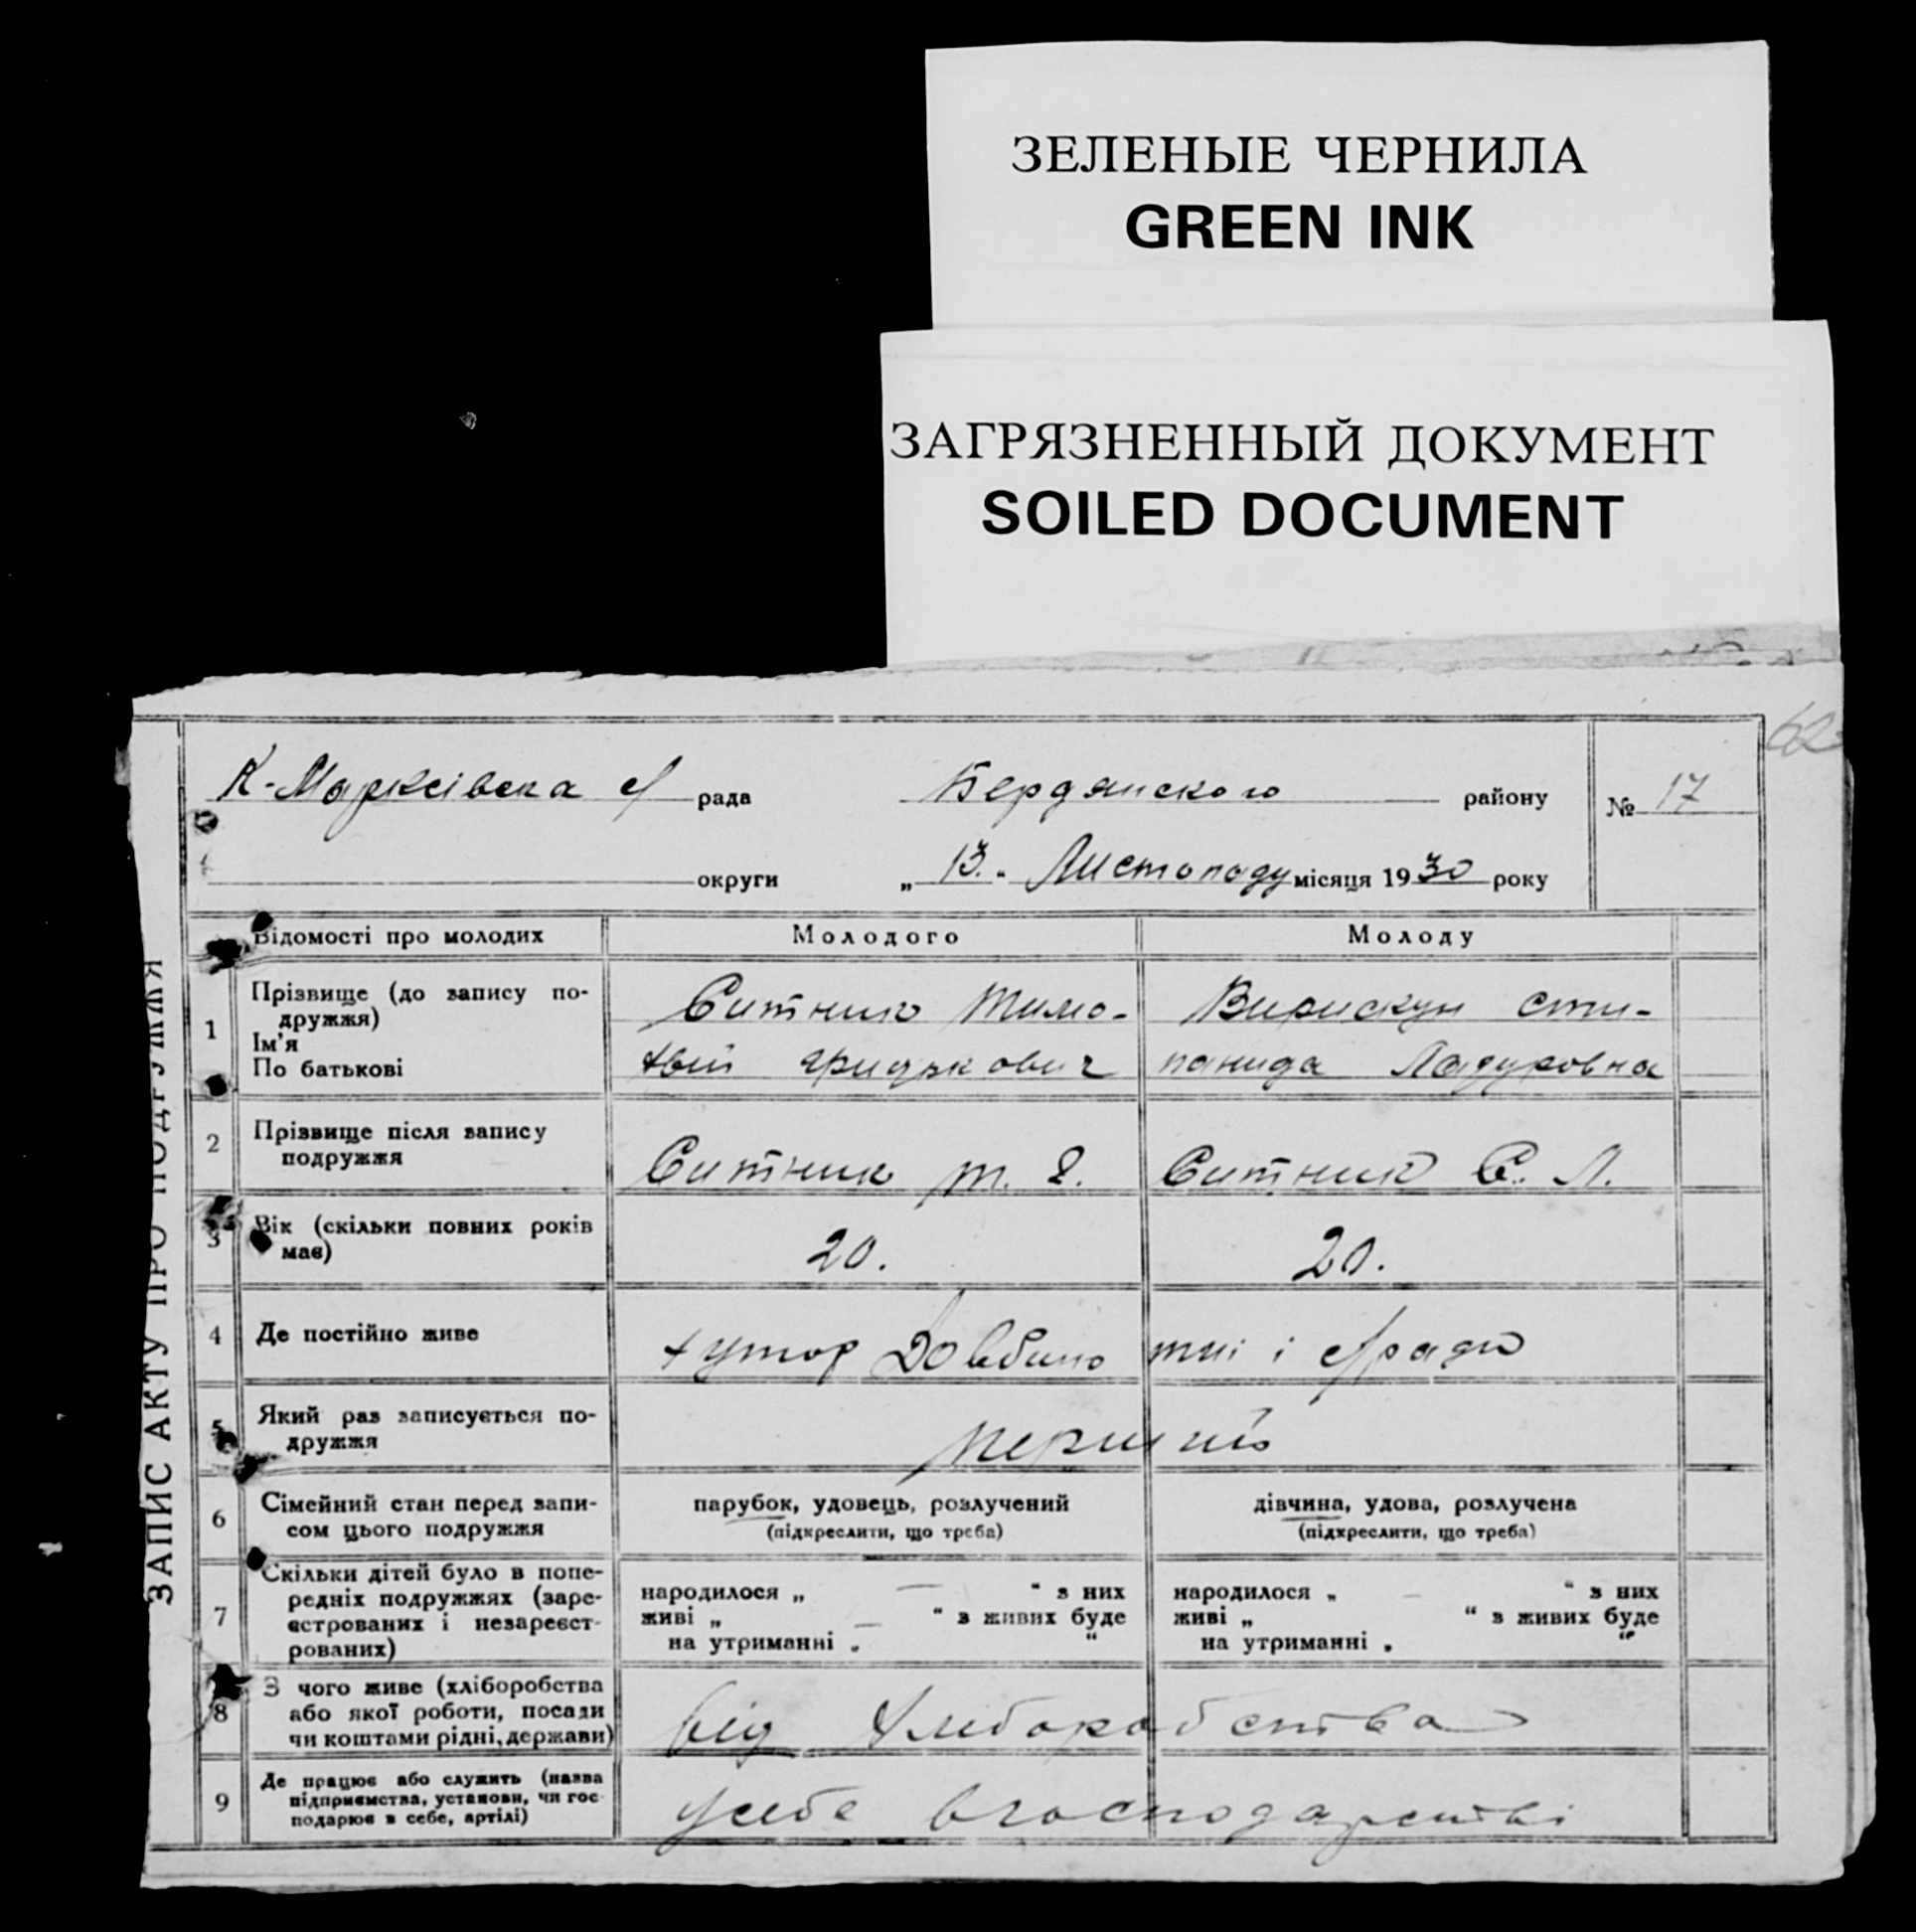 ЗЕЛЕНЫЕ ЧЕРНИЛА
GREEN INK
ЗАГРЯЗНЕННЫЙ ДОКУМЕНТ
SOILED DOCUMENT
62
К-Марксівска с/ рада Бердянского району № 17
округи „13.“ Листопаду місяця 1930 року
ЗАПИС АКТУ ПРО ПОДРУЖЖЯ
Відомості про молодих Молодого Молоду
1 Прізвище (до запису по-
дружжя)
Ім'я
По батькові
Ситник Тимо-
фей
Сти-
панида
2 Прізвище після запису
подружжя
Ситник Т. Г. Ситник С. Л.
3 Вік (скільки повних років
має)
20. 20.
4 Де постійно живе
хутор с/ради
5 Який раз записується по-
дружжя
перший
6 Сімейний стан перед запи-
сом цього подружжя
парубок, удовець, розлучений
(підкреслити, що треба)
дівчина, удова, розлучена
(підкреслити, що треба)
7 Скільки дітей було в попе-
редніх подружжях (заре-
єстрованих і незареєст-
рованих)
народилося „ — “ з них
живі „ — “ з живих буде
на утриманні „ “
народилося „ — “ з них
живі „ “ з живих буде
на утриманні „ “
8 З чого живе (хліборобства
або якої роботи, посади
чи коштами рідні, держави)
від хлиборобства
9 Де працює або служить (назва
підприємства, установи, чи гос-
подарює в себе, артілі)
усебе вгосподарстві